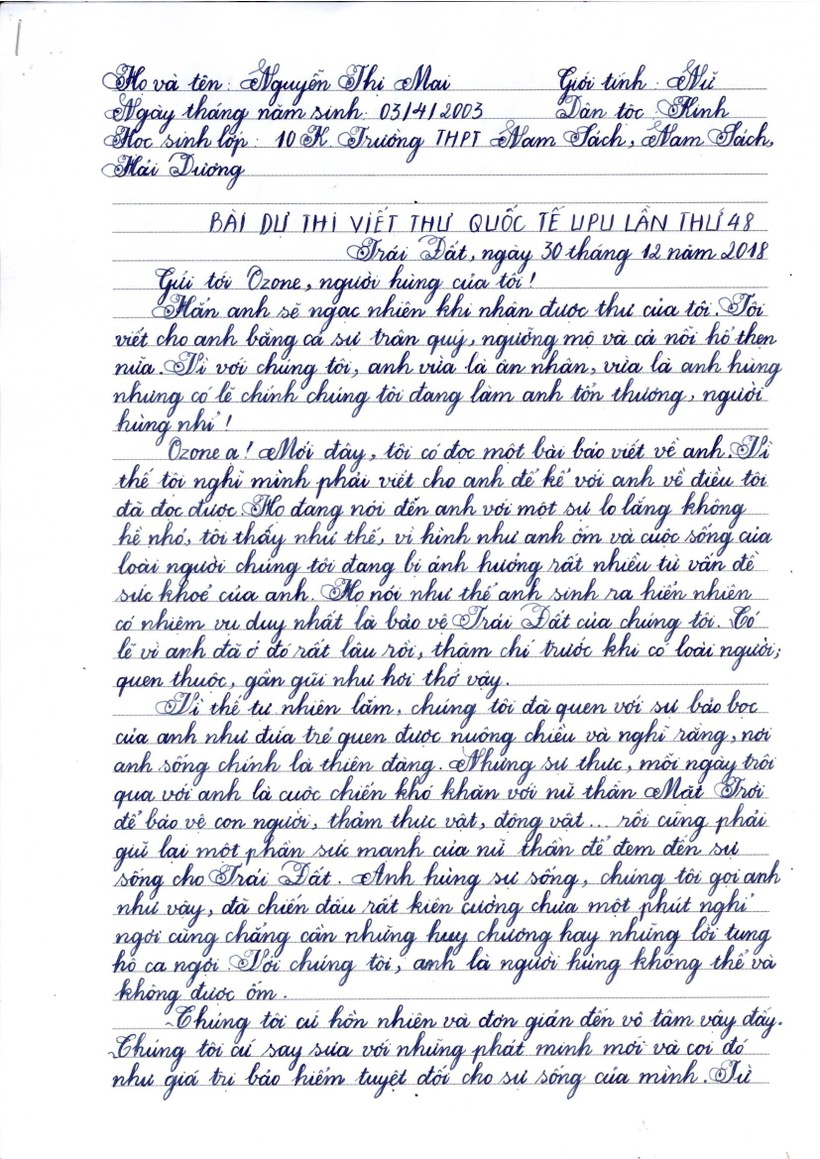 Họ và tên: Nguyễn Thị Mai Giới tính: Nữ
Ngày tháng năm sinh: 03/4/2003 Dân tộc: Kinh
Học sinh lớp: 10K Trường THPT Nam Sách, Nam Sách,
Hải Dương
BÀI DỰ THI VIẾT THƯ QUỐC TẾ UPU LẦN THỨ 48
Trái Đất, ngày 30 tháng 12 năm 2018
Gửi tới Ozone, người hùng của tôi!
Hẳn anh sẽ ngạc nhiên khi nhận được thư của tôi. Tôi
viết cho anh bằng cả sự trân quý, ngưỡng mộ và cả nỗi hổ thẹn
nữa. Vì với chúng tôi, anh vừa là ân nhân, vừa là anh hùng
nhưng có lẽ chính chúng tôi đang làm anh tổn thương, người
hùng nhỉ!
Ozone ạ! Mới đây, tôi có đọc một bài báo viết về anh. Vì
thế tôi nghĩ mình phải viết cho anh để kể với anh về điều tôi
đã đọc được. Họ đang nói đến anh với một sự lo lắng không
hề nhỏ, tôi thấy như thế, vì hình như anh ốm và cuộc sống của
loài người chúng tôi đang bị ảnh hưởng rất nhiều từ vấn đề
sức khoẻ của anh. Họ nói như thể anh sinh ra hiển nhiên
có nhiệm vụ duy nhất là bảo vệ Trái Đất của chúng tôi. Có
lẽ vì anh đã ở đó rất lâu rồi, thậm chí trước khi có loài người;
quen thuộc, gần gũi như hơi thở vậy.
Vì thế tự nhiên lắm, chúng tôi đã quen với sự bảo bọc
của anh như đứa trẻ quen được nuông chiều và nghĩ rằng, nơi
anh sống chính là thiên đàng. Nhưng sự thực, mỗi ngày trôi
qua với anh là cuộc chiến khó khăn với nữ thần Mặt Trời
để bảo vệ con người, thảm thực vật, động vật... rồi cũng phải
giữ lại một phần sức mạnh của nữ thần để đem đến sự
sống cho Trái Đất. Anh hùng sự sống, chúng tôi gọi anh
như vậy, đã chiến đấu rất kiên cường chưa một phút nghỉ
ngơi cũng chẳng cần những huy chương hay những lời tung
hô ca ngợi. Với chúng tôi, anh là người hùng không thể và
không được ốm.
Chúng tôi cứ hồn nhiên và đơn giản đến vô tâm vậy đấy.
Chúng tôi cứ say sưa với những phát minh mới và coi đó
như giá trị bảo hiểm tuyệt đối cho sự sống của mình. Từ